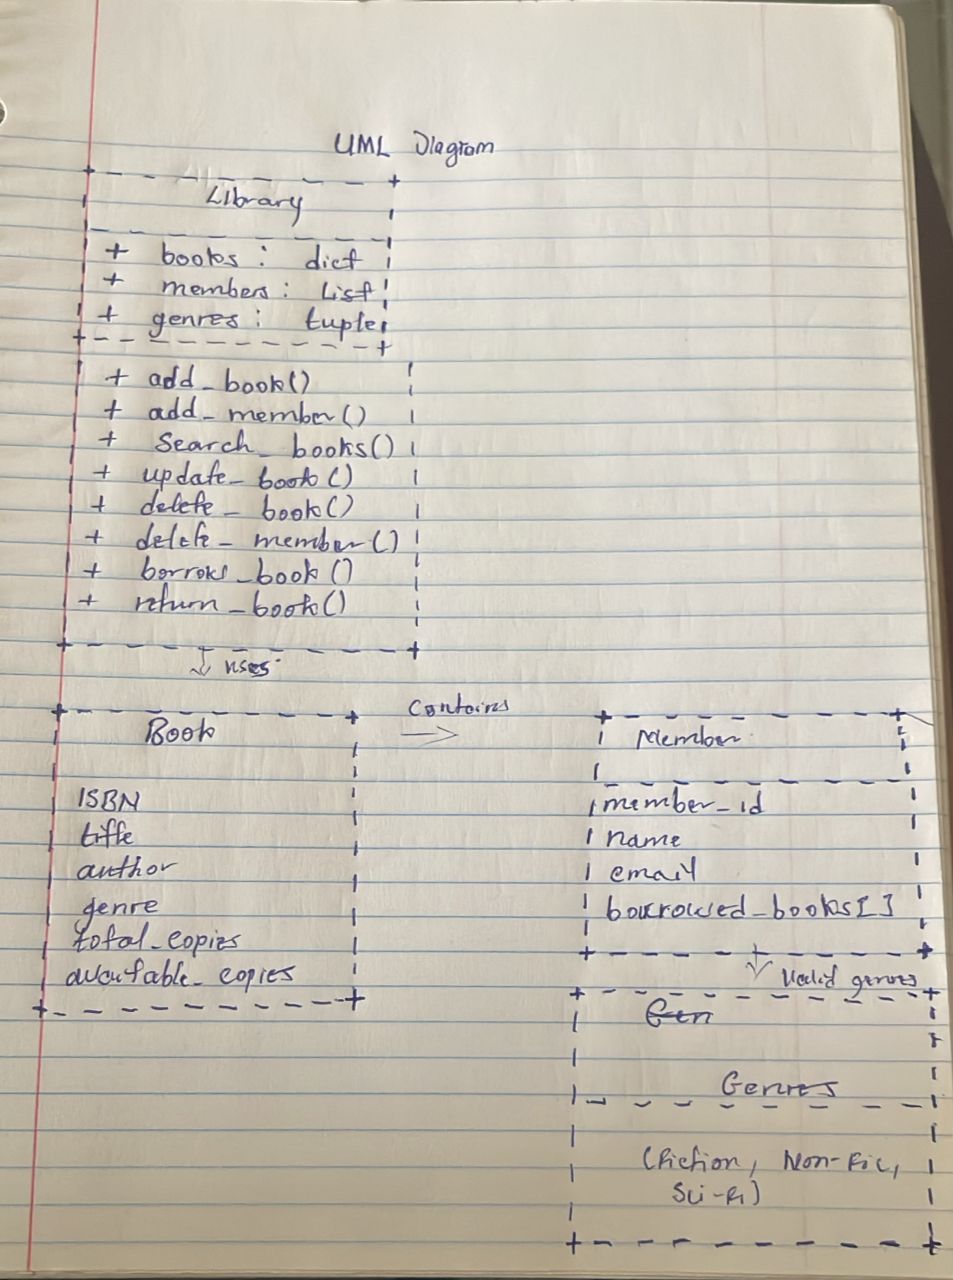 UML Diagram
Library
+ books : dict
+ members : List
+ genres : tuple
+ add_book()
+ add_member()
+ Search_books()
+ update_book()
+ delete_book()
+ delete_member()
+ borrows_book()
+ return_book()
uses
Book
ISBN
title
author
genre
total_copies
available_copies
contains
Member
member_id
name
email
borrowed_books[]
Valid genres
Gen
Genres
(Fiction, Non-Fic,
Sci-Fi)